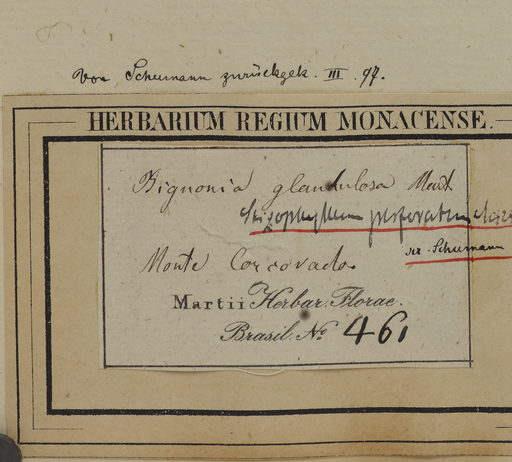 Von Schumann zurückgek. III. 97.
HERBARIUM REGIUM MONACENSE.
Bignonia glandulosa Mart
Stizophyllum perforatum
Schumann
Monte Corcovado
Martii Herbar. Florae.
Brasil. No 461